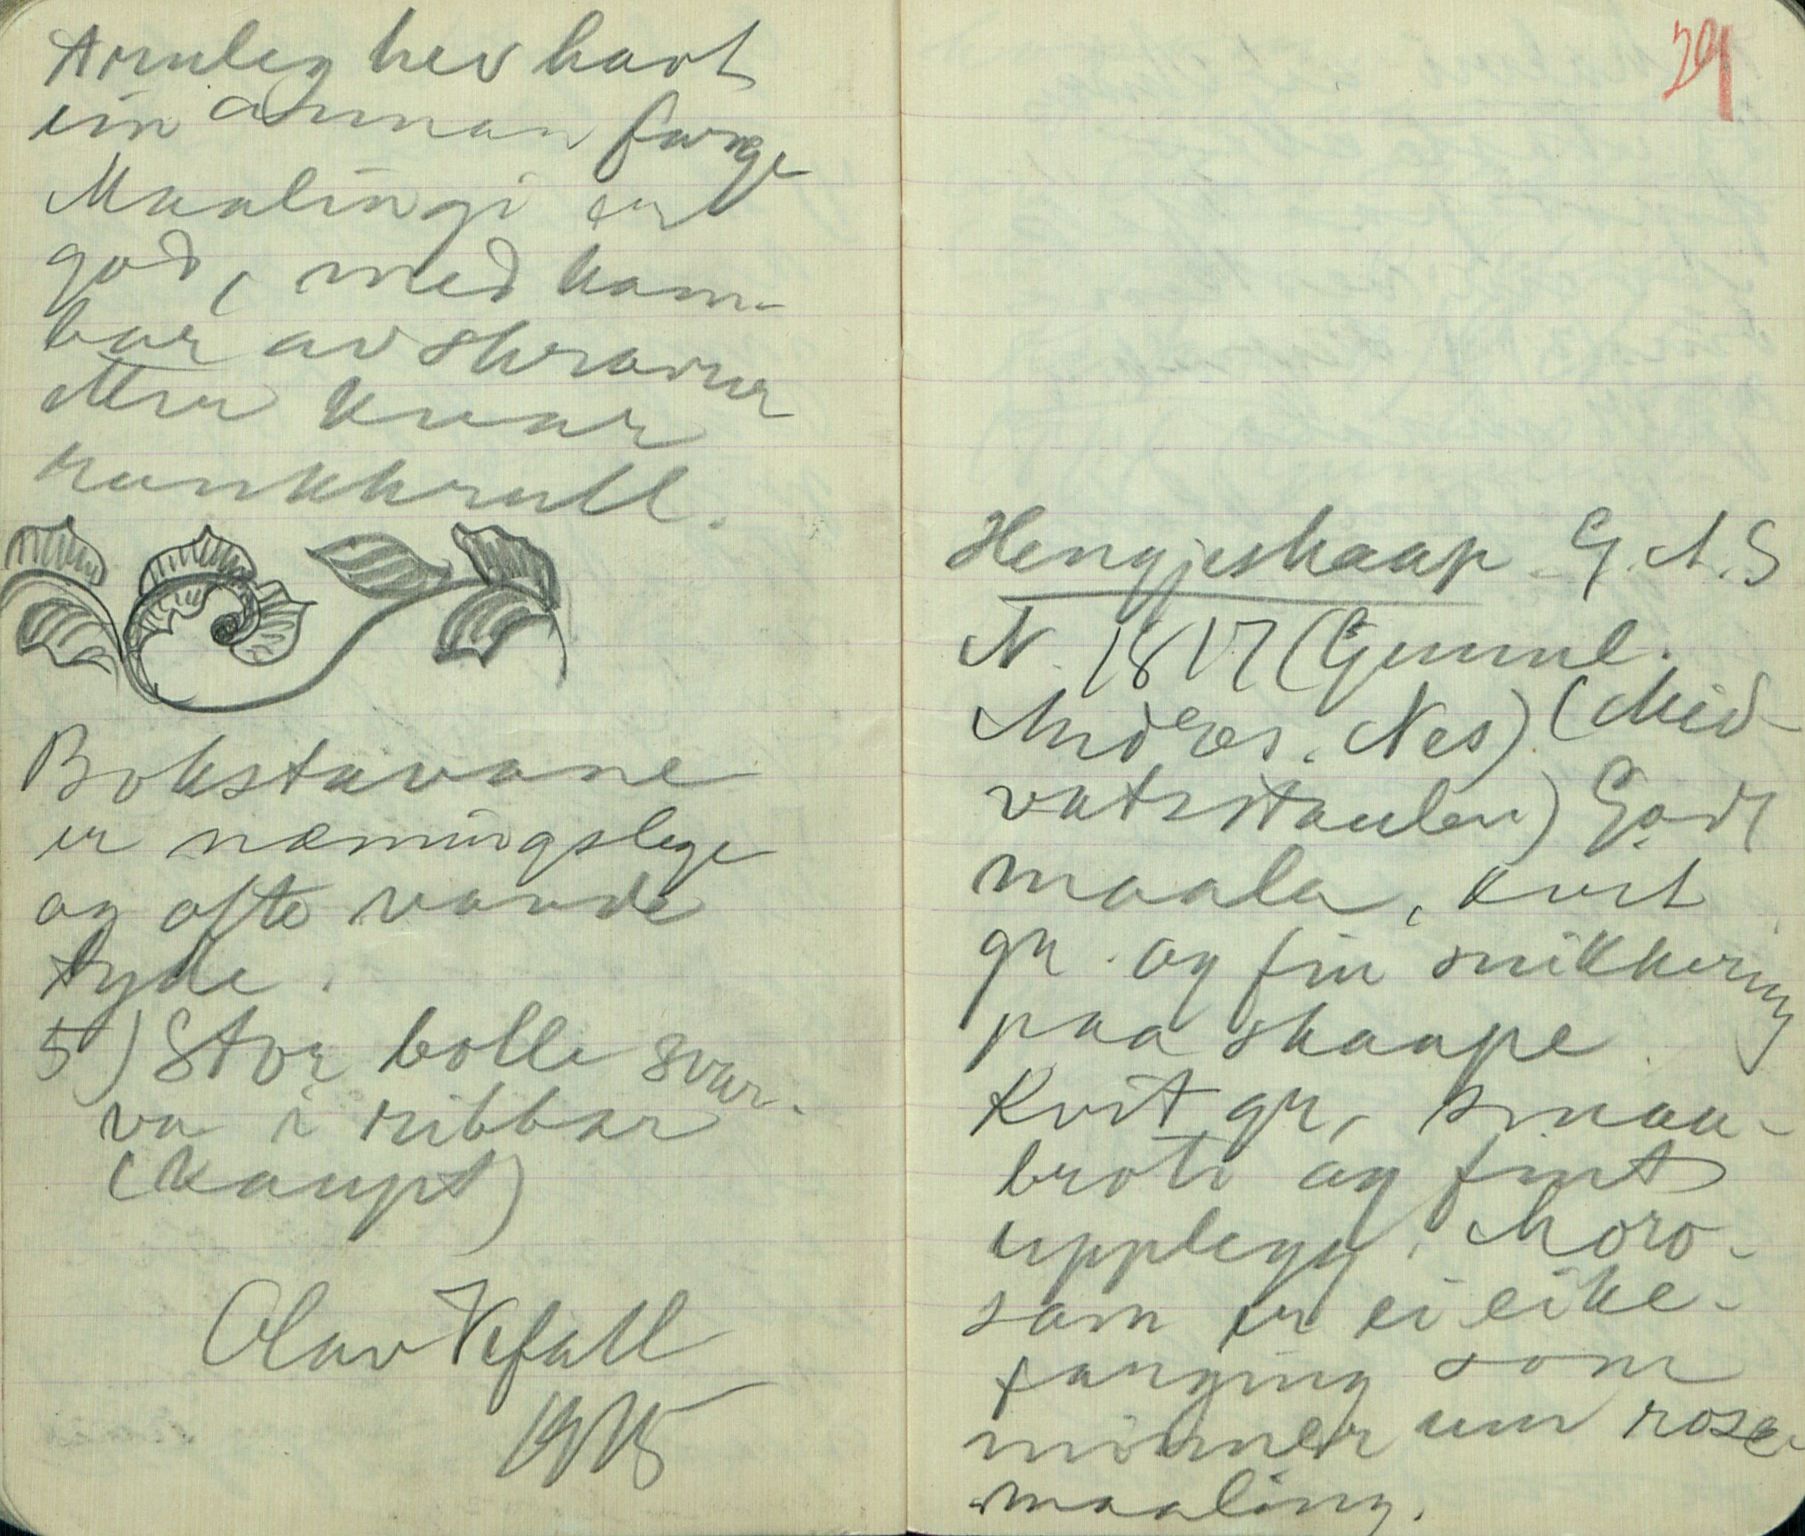 Truleg hev havt
ein annan farge
Maalingi er
god, med kam-
bar av skravur
etter kvar
rankkrull.
Bokstavane
er næmingslege
og ofte vande
tyde.
5) Stor bolle svar-
va i ribbar
(kaupt)
Olav Vefall
1915
29
Hengjeskaap G.A.S
N. 1817 (Gamml.
Andres. Nes) (Mid-
vatsstaulen) Godt
maala, kvit
gr. og fin snikkering
paa skaape
Kvit gr, smaa-
brote og fint
upplegg. Moro-
sam er ei eike-
fanging som
minner um rose-
maaling.